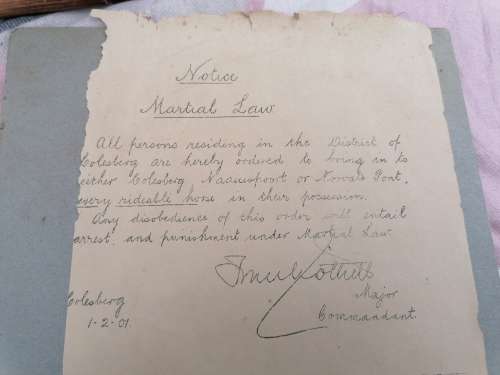 Notice
Martial Law.
All persons residing in the District of
Colesberg are hereby ordered to bring in to
either Colesberg, Naauwpoort or Norvals Pont,
every rideable horse in their possession.
Any disobedience of this order will entail
arrest, and punishment under Martial Law
Major
Colesberg
Commandant.
1-2-01.